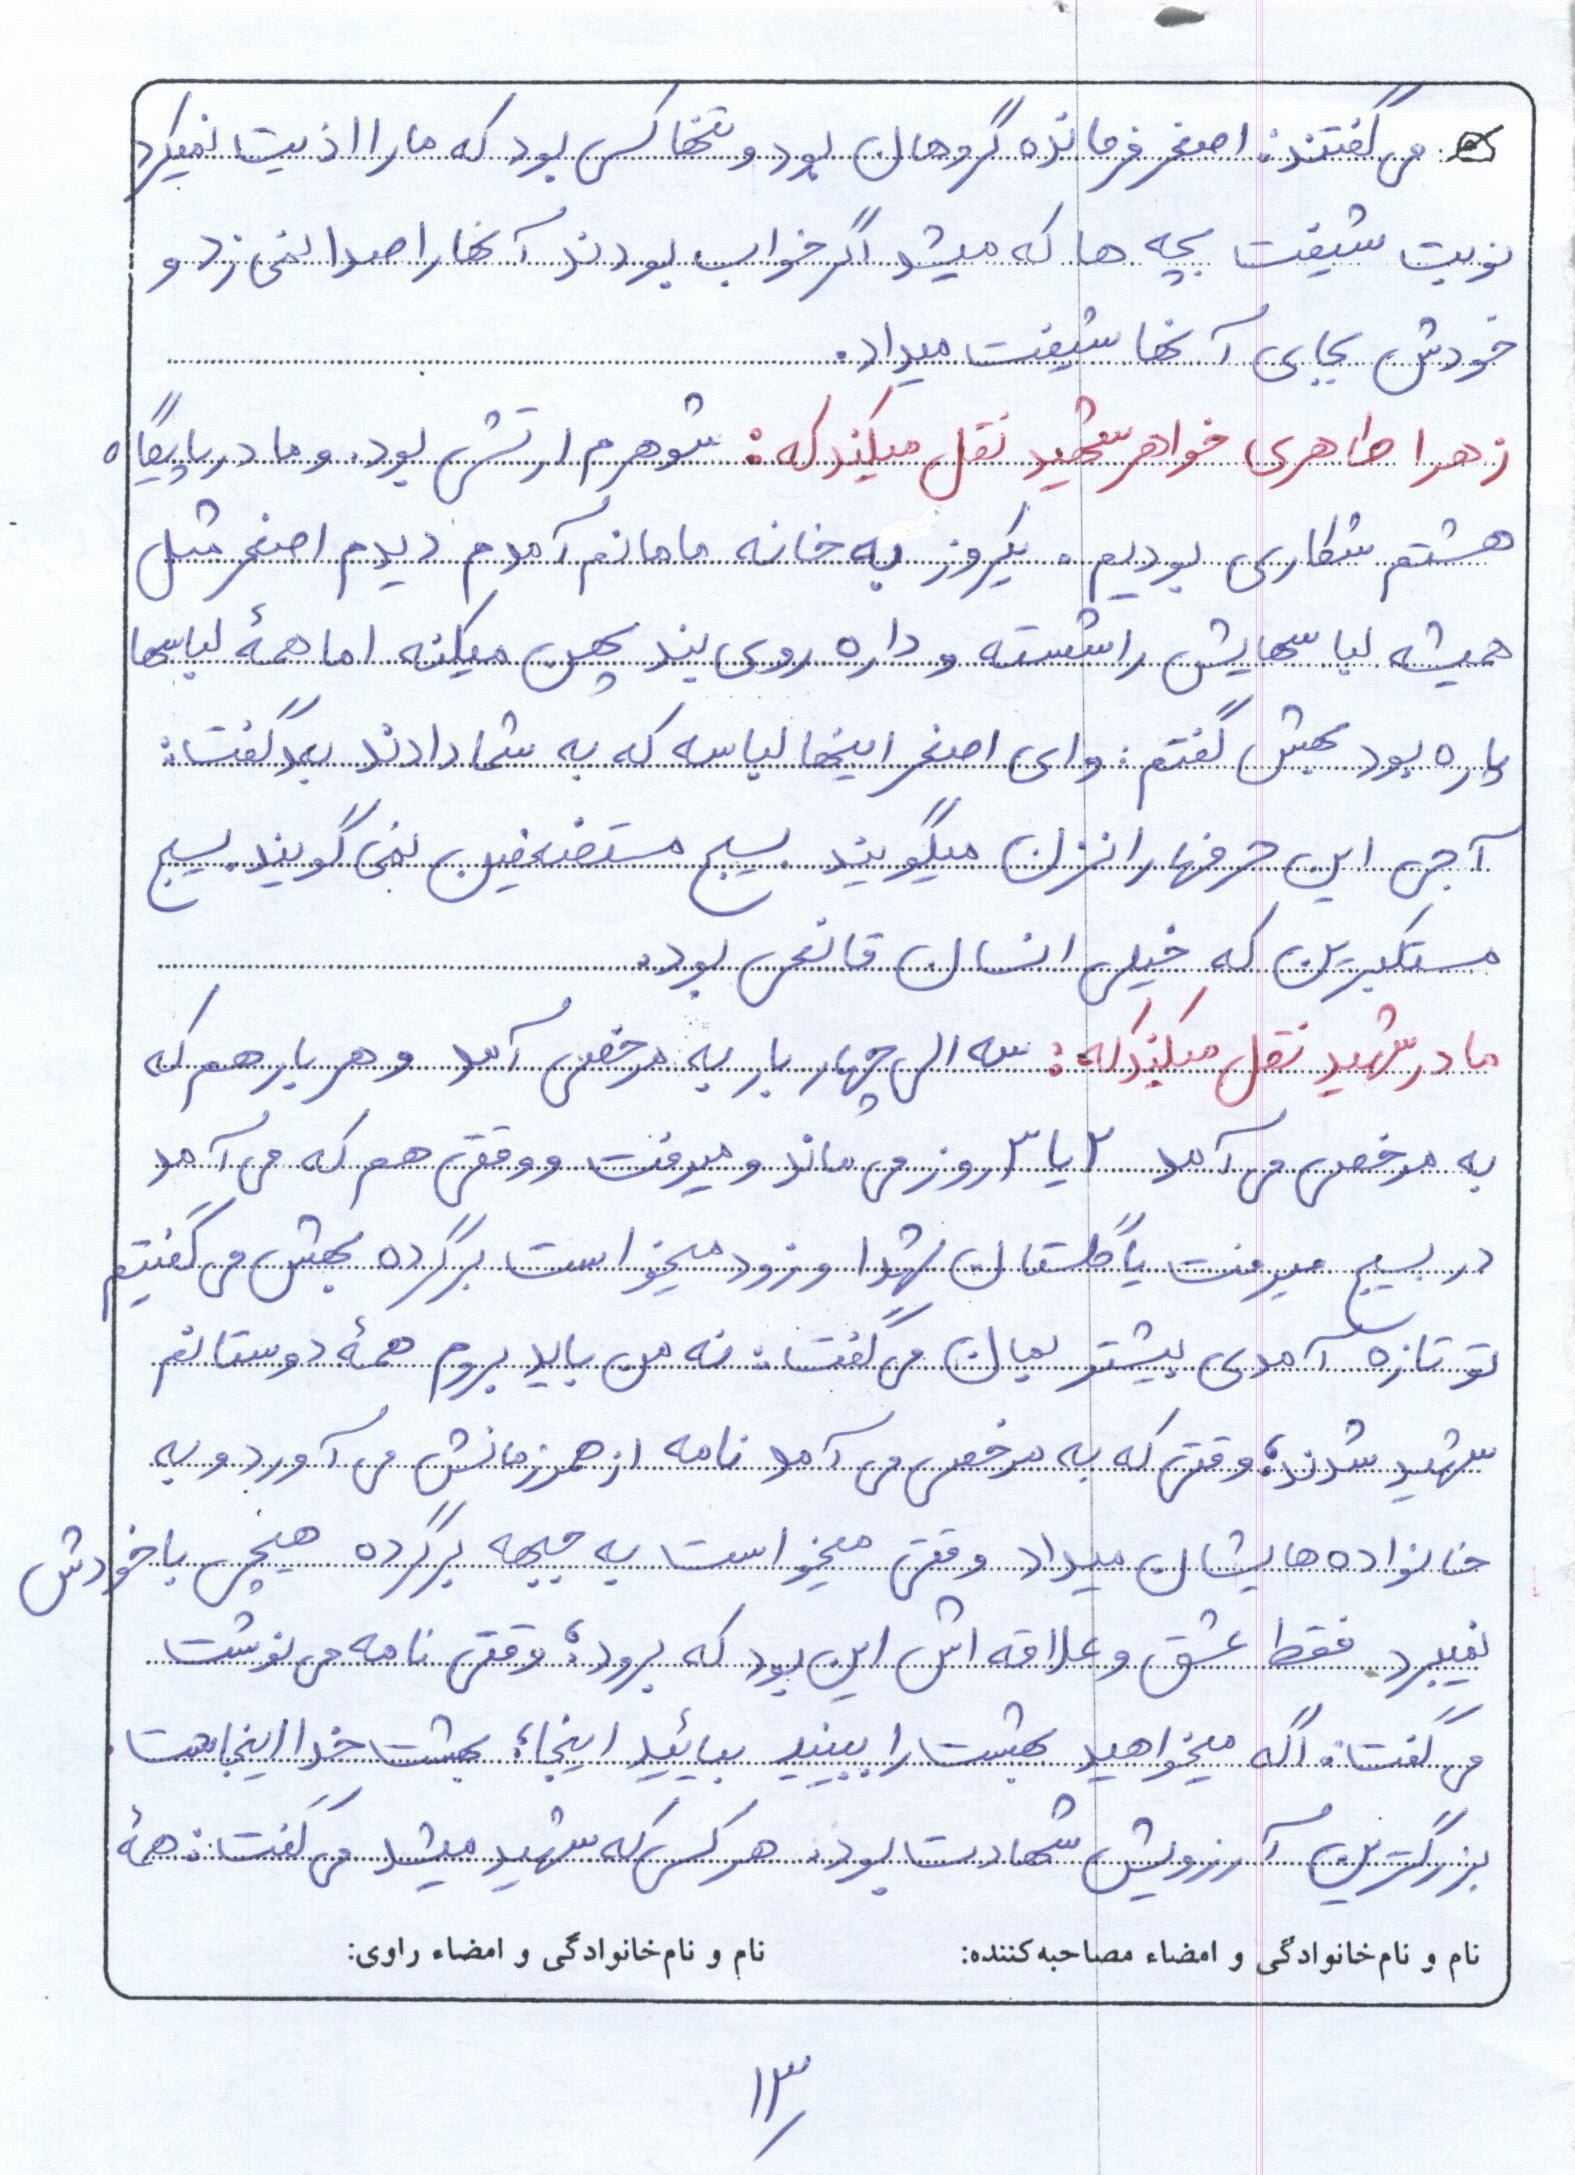 می گفتند: اصغر فرمانده گروهان بود و تنها کسی بود که ما را اذیت نمیکرد
نوبت شیفت بچه ها که میشد اگر خواب بودند آنها را صدا نمی زد و
خودش بجای آنها شیفت میداد.
زهرا طاهری خواهر شهید نقل میکند که: شوهرم ارتشی بود. و ما در پایگاه
هشتم شکاری بودیم. یکروز به خانه مامانم آمدم دیدم اصغر مثل
همیشه لباسهایش را شسته و داره روی بند پهن میکنه اما همهٔ لباسها
پاره بود بهش گفتم: وای اصغر اینها لباسه که به شما دادند گفت:
آجی این حرفها را نزن میگویند بسیج مستضعفین نمی گویند بسیج
مستکبرین که خیلی انسان قانعی بود.
مادر شهید نقل میکند که: سه الی چهار بار به مرخصی آمد و هر بار هم که
به مرخصی می آمد ۲ یا ۳ روز می ماند و میرفت و وقتی هم که می آمد
در بسیج میرفت یا گلستان شهدا و زود میخواست برگرده بهش می گفتیم
تو تازه آمدی بیشتر بمان می گفت: نه من باید بروم همهٔ دوستانم
شهید شدند؛ وقتی که به مرخصی می آمد نامه از همرزمانش می آورد و به
خانواده هایشان میداد وقتی میخواست به جبهه برگرده هیچی با خودش
نمیبرد فقط عشق و علاقه اش این بود که برود؛ وقتی نامه می نوشت
می گفت: اگه میخواهید بهشت را ببینید بیائید اینجا؛ بهشت خدا اینجاست.
بزرگترین آرزویش شهادت بود. هر کسی که شهید میشد می گفت: همهٔ
نام و نام‌خانوادگی و امضاء مصاحبه‌کننده: نام و نام‌خانوادگی و امضاء راوی:
۱۳